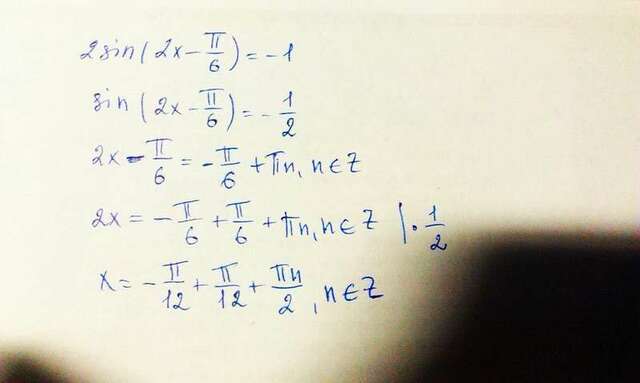 2sin(2x - π/6) = -1
sin(2x - π/6) = -1/2
2x - π/6 = -π/6 + πn, n ∈ Z
2x = -π/6 + π/6 + πn, n ∈ Z | · 1/2
x = -π/12 + π/12 + πn/2, n ∈ Z